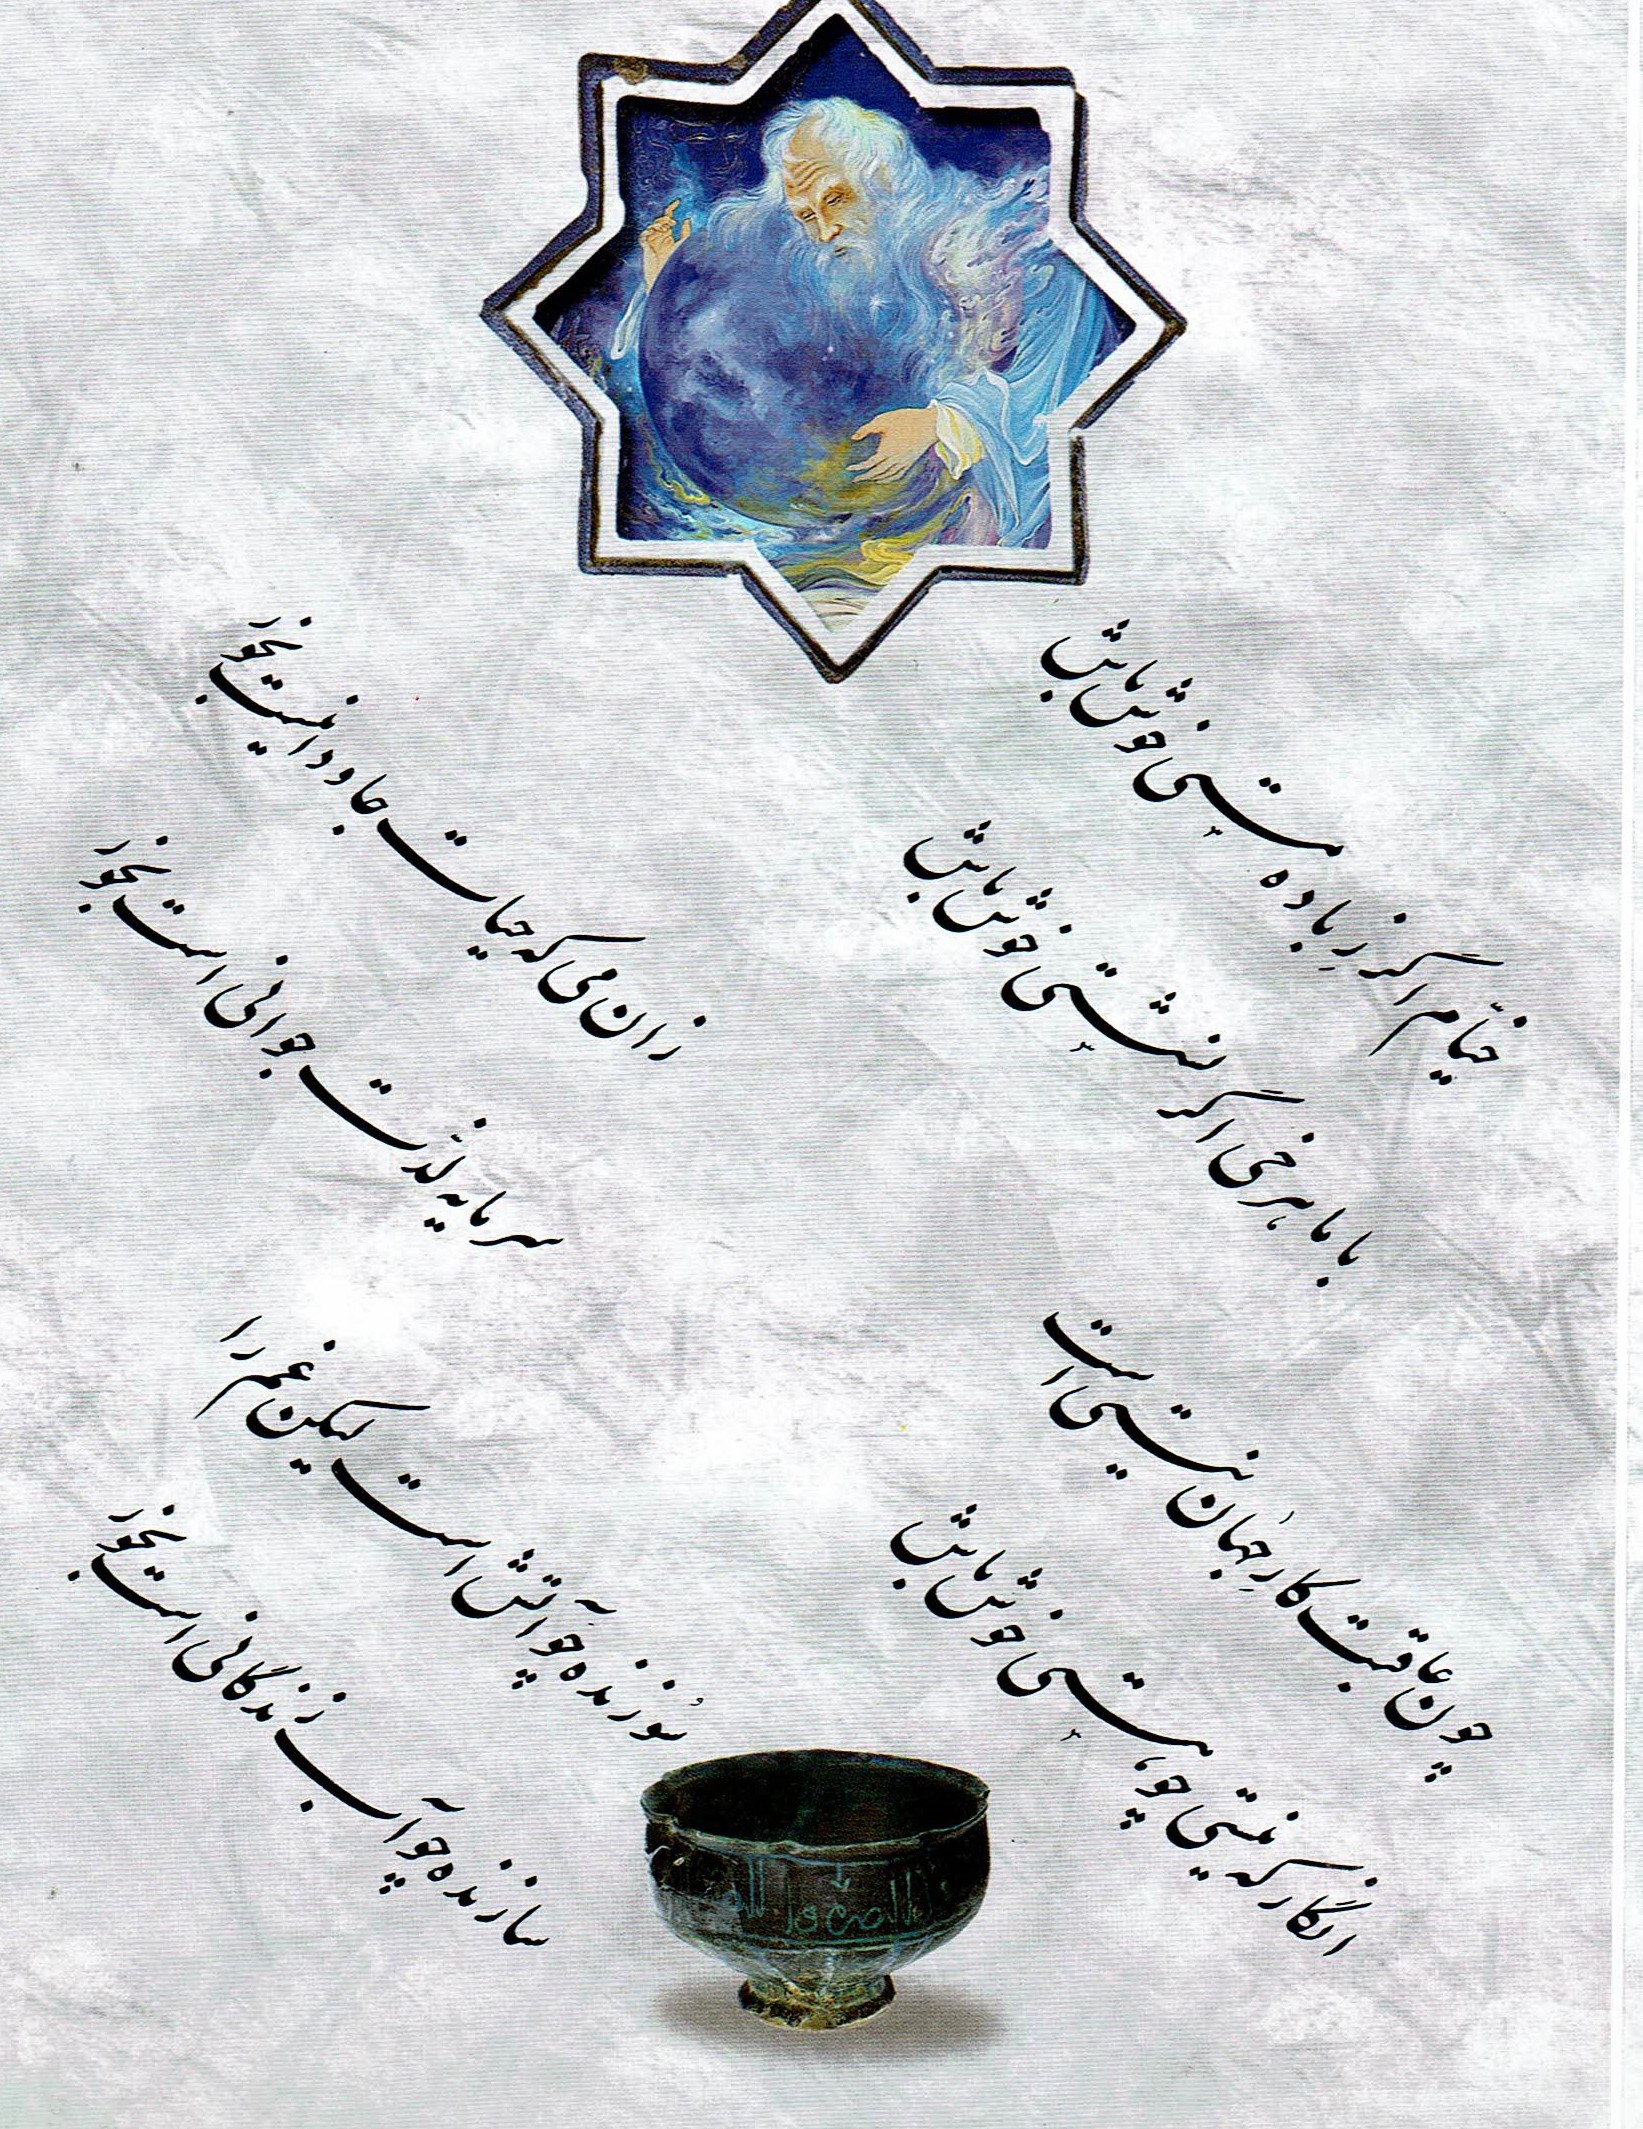 خیّام اگر زِ باده مستی خوش باش
با ماهرخی اگر نشستی خوش باش
چون عاقبت کارِ جهان نیستی است
انگار که نیستی چو هستی خوش باش
زان می که حیات جاودانیست بخور
سرمایه لذّت جوانی است بخور
سوزنده چو آتش است لیکن غم را
سازنده چو آب زندگانی است بخور